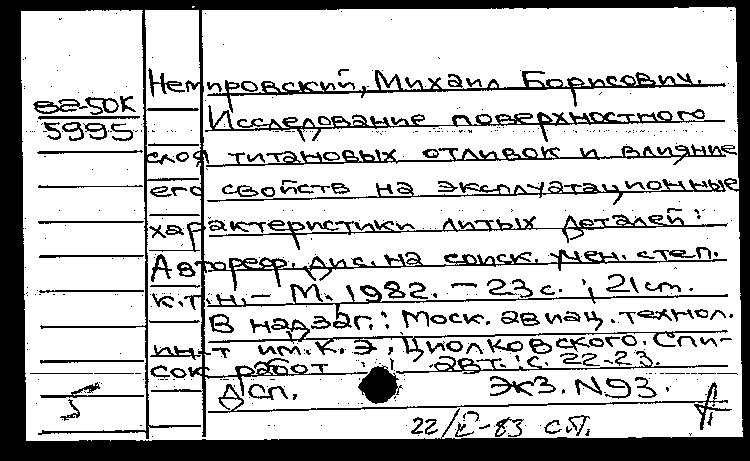 Немировский, Михаил Борисович.
82-50К
5995
Исследование поверхностного
слоя титановых отливок и влияние
его свойств на эксплуатационные
характеристики литых деталей:
Автореф. дис. на соиск. учен. степ.
к.т.н. – М., 1982. – 23 с.; 21 см.
В надзаг.: Моск. авиац. технол.
ин-т им. К. Э. Циолковского. Спи-
сок работ авт.: с. 22-23.
Дсп. Экз. N93.
5
22/ -83 с.т.